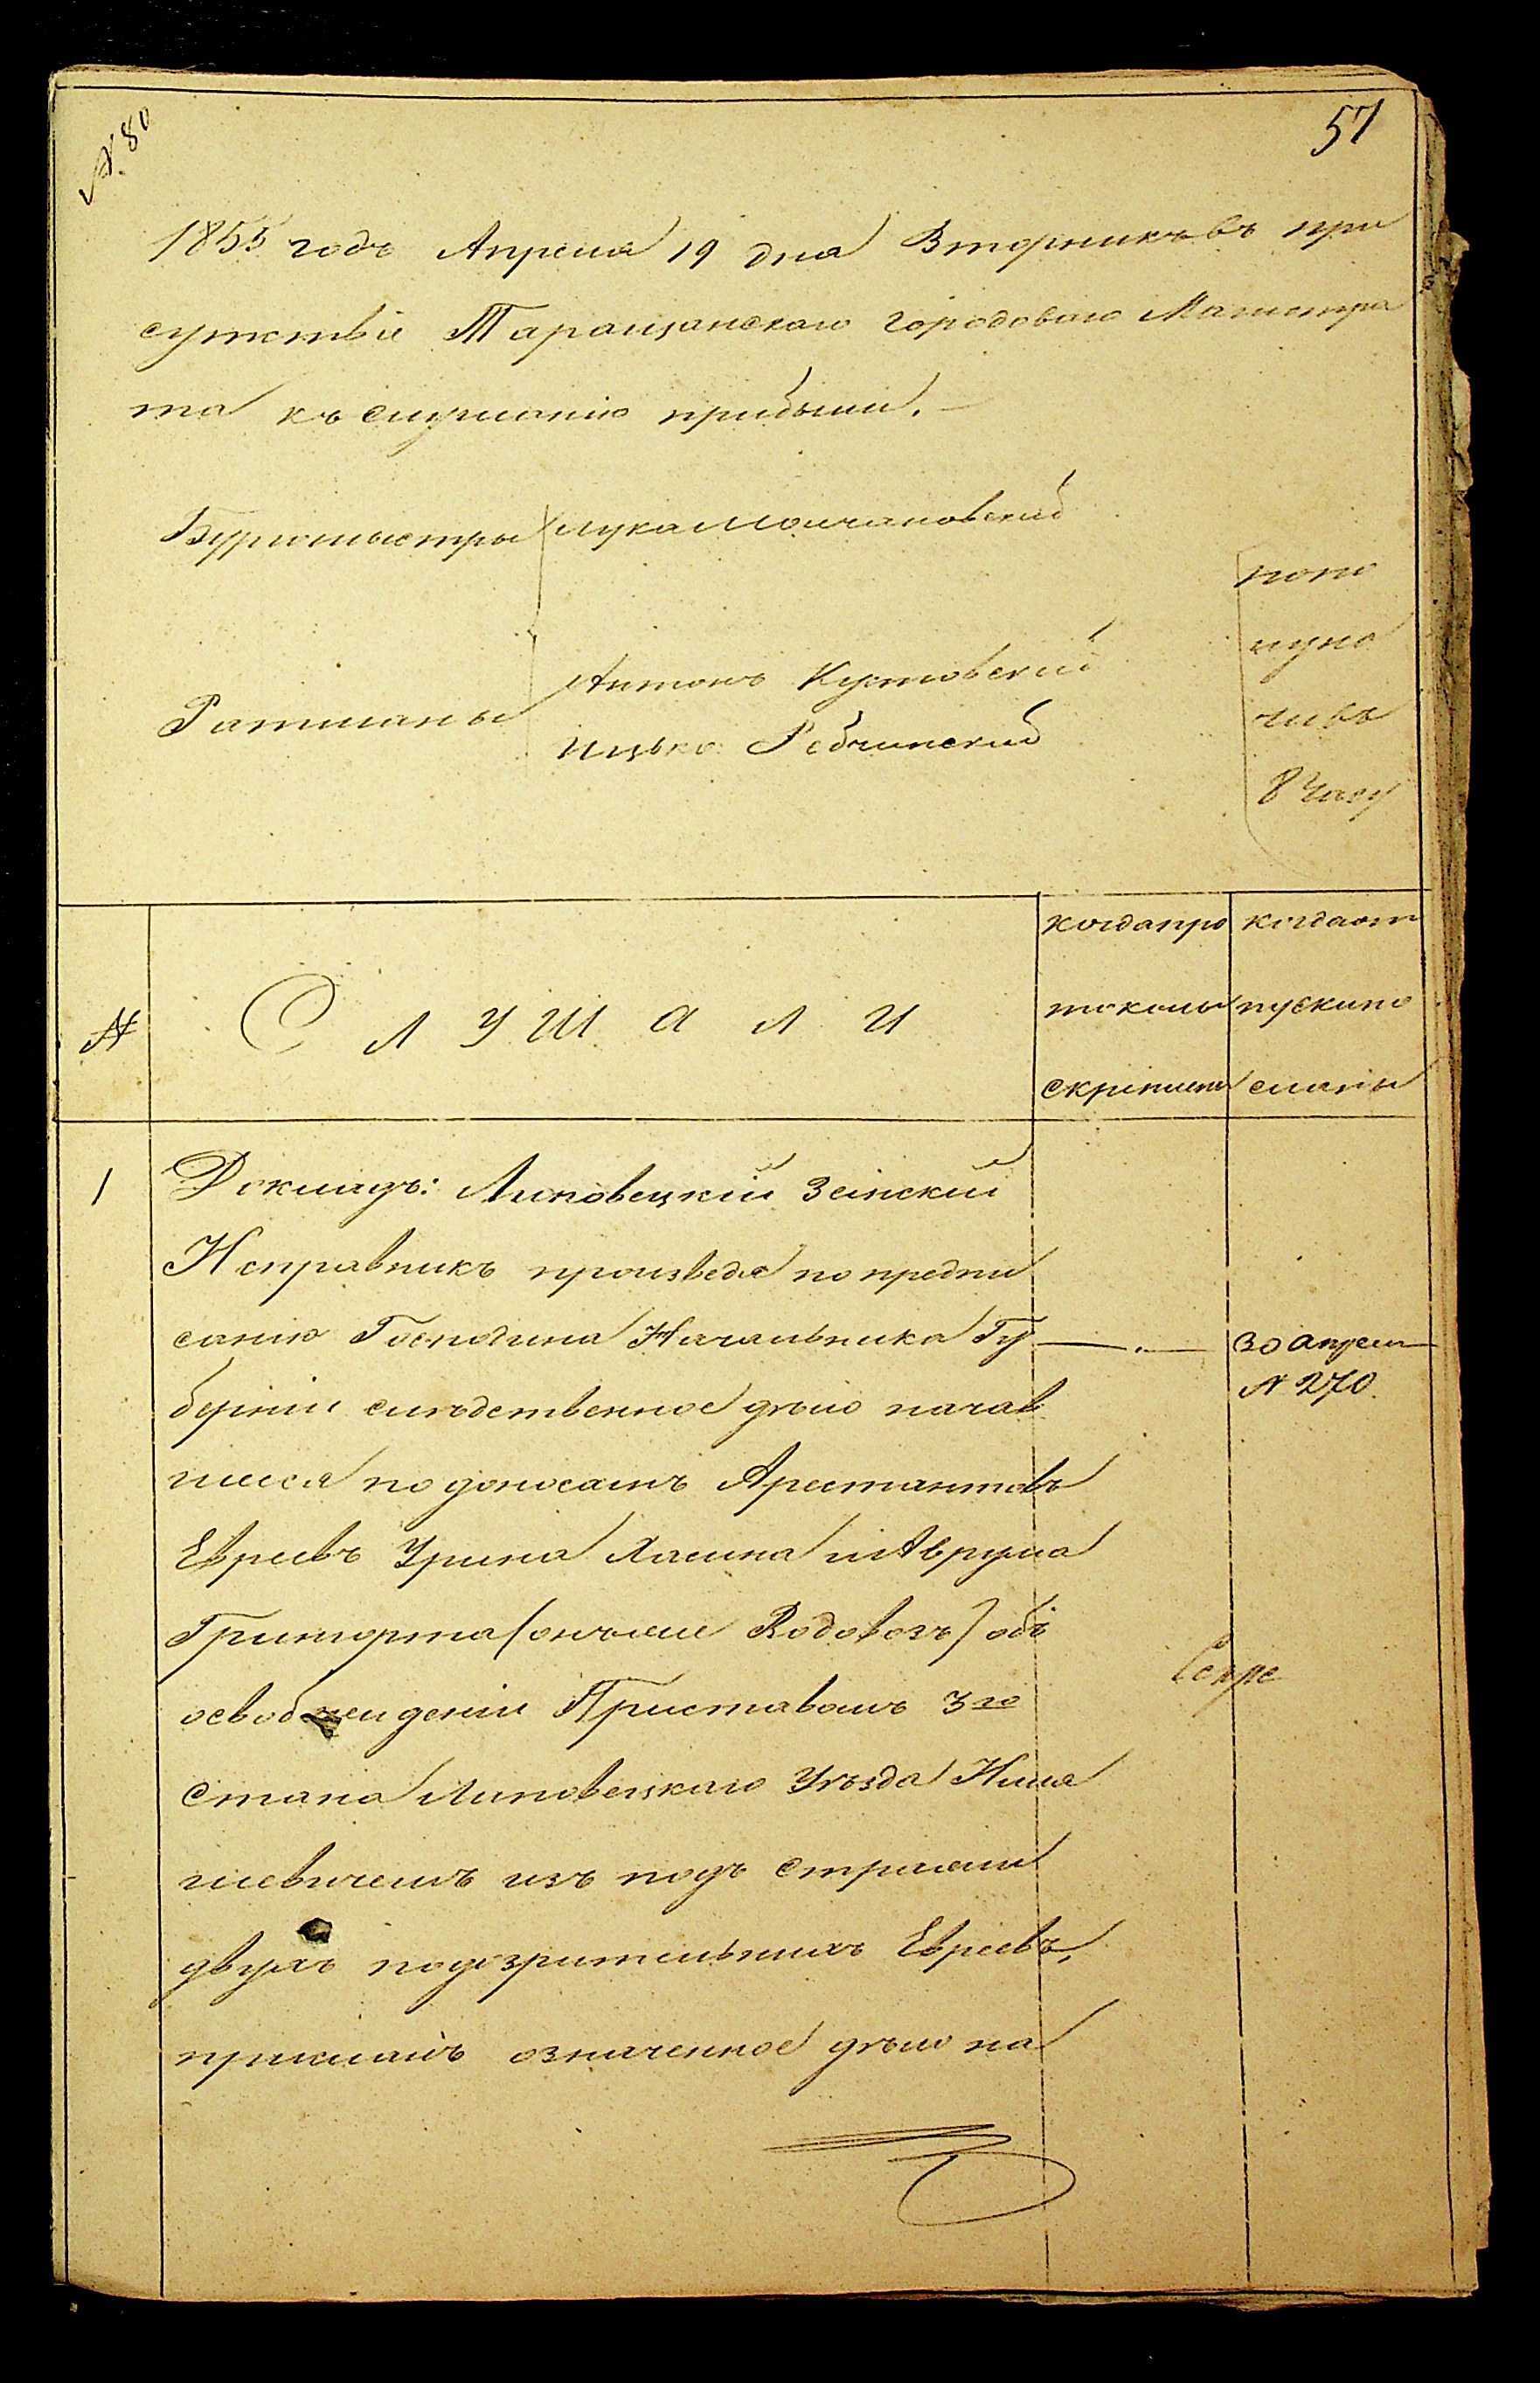 N. 80
57
1855 годъ Апреля 19 дня Вторникъ въ при
сутствіе Таращанскаго Городоваго Магистра
та къ слушанію прибыли. —
Бургомыстры Лука Молчановскій
Ратманы
Антонъ Кутовскій
Ицько Рабчинскій
попо
луно
чивъ
8 Часу
N
СЛУШАЛИ
когда про
токолы
скреплены
когда от
пуски по
сланы
1
Докладъ: Липовецкій Земскій
Исправникъ произведя по предпи
санію Господина Начальника Гу
берніи следственное дѣло начав
шееся по доносамъ Арестантовъ
Евреевъ Урина Хасина и Аврума
(онъ же Водовозъ) объ
освобождении Приставомъ 3го
Стана Липовецкаго Уѣзда
изъ подъ стражи
двухъ подозрительныхъ Евреевъ,
прислалъ означенное дѣло на
30 апреля
N 270.
Секре